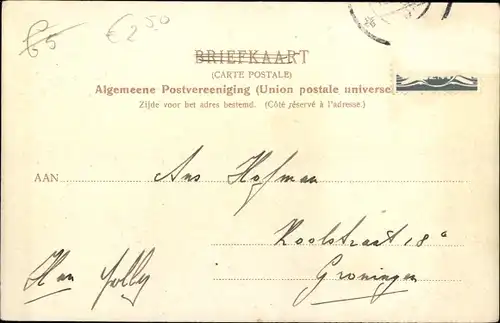 65
€2.50
BRIEFKAART
(CARTE POSTALE)
Algemeene Postvereeniging (Union postale universe
Zijde voor het adres bestemd. (Côté réservé à l'adresse.)
AAN Ans Hofman
Koolstraat 18a
Groningen